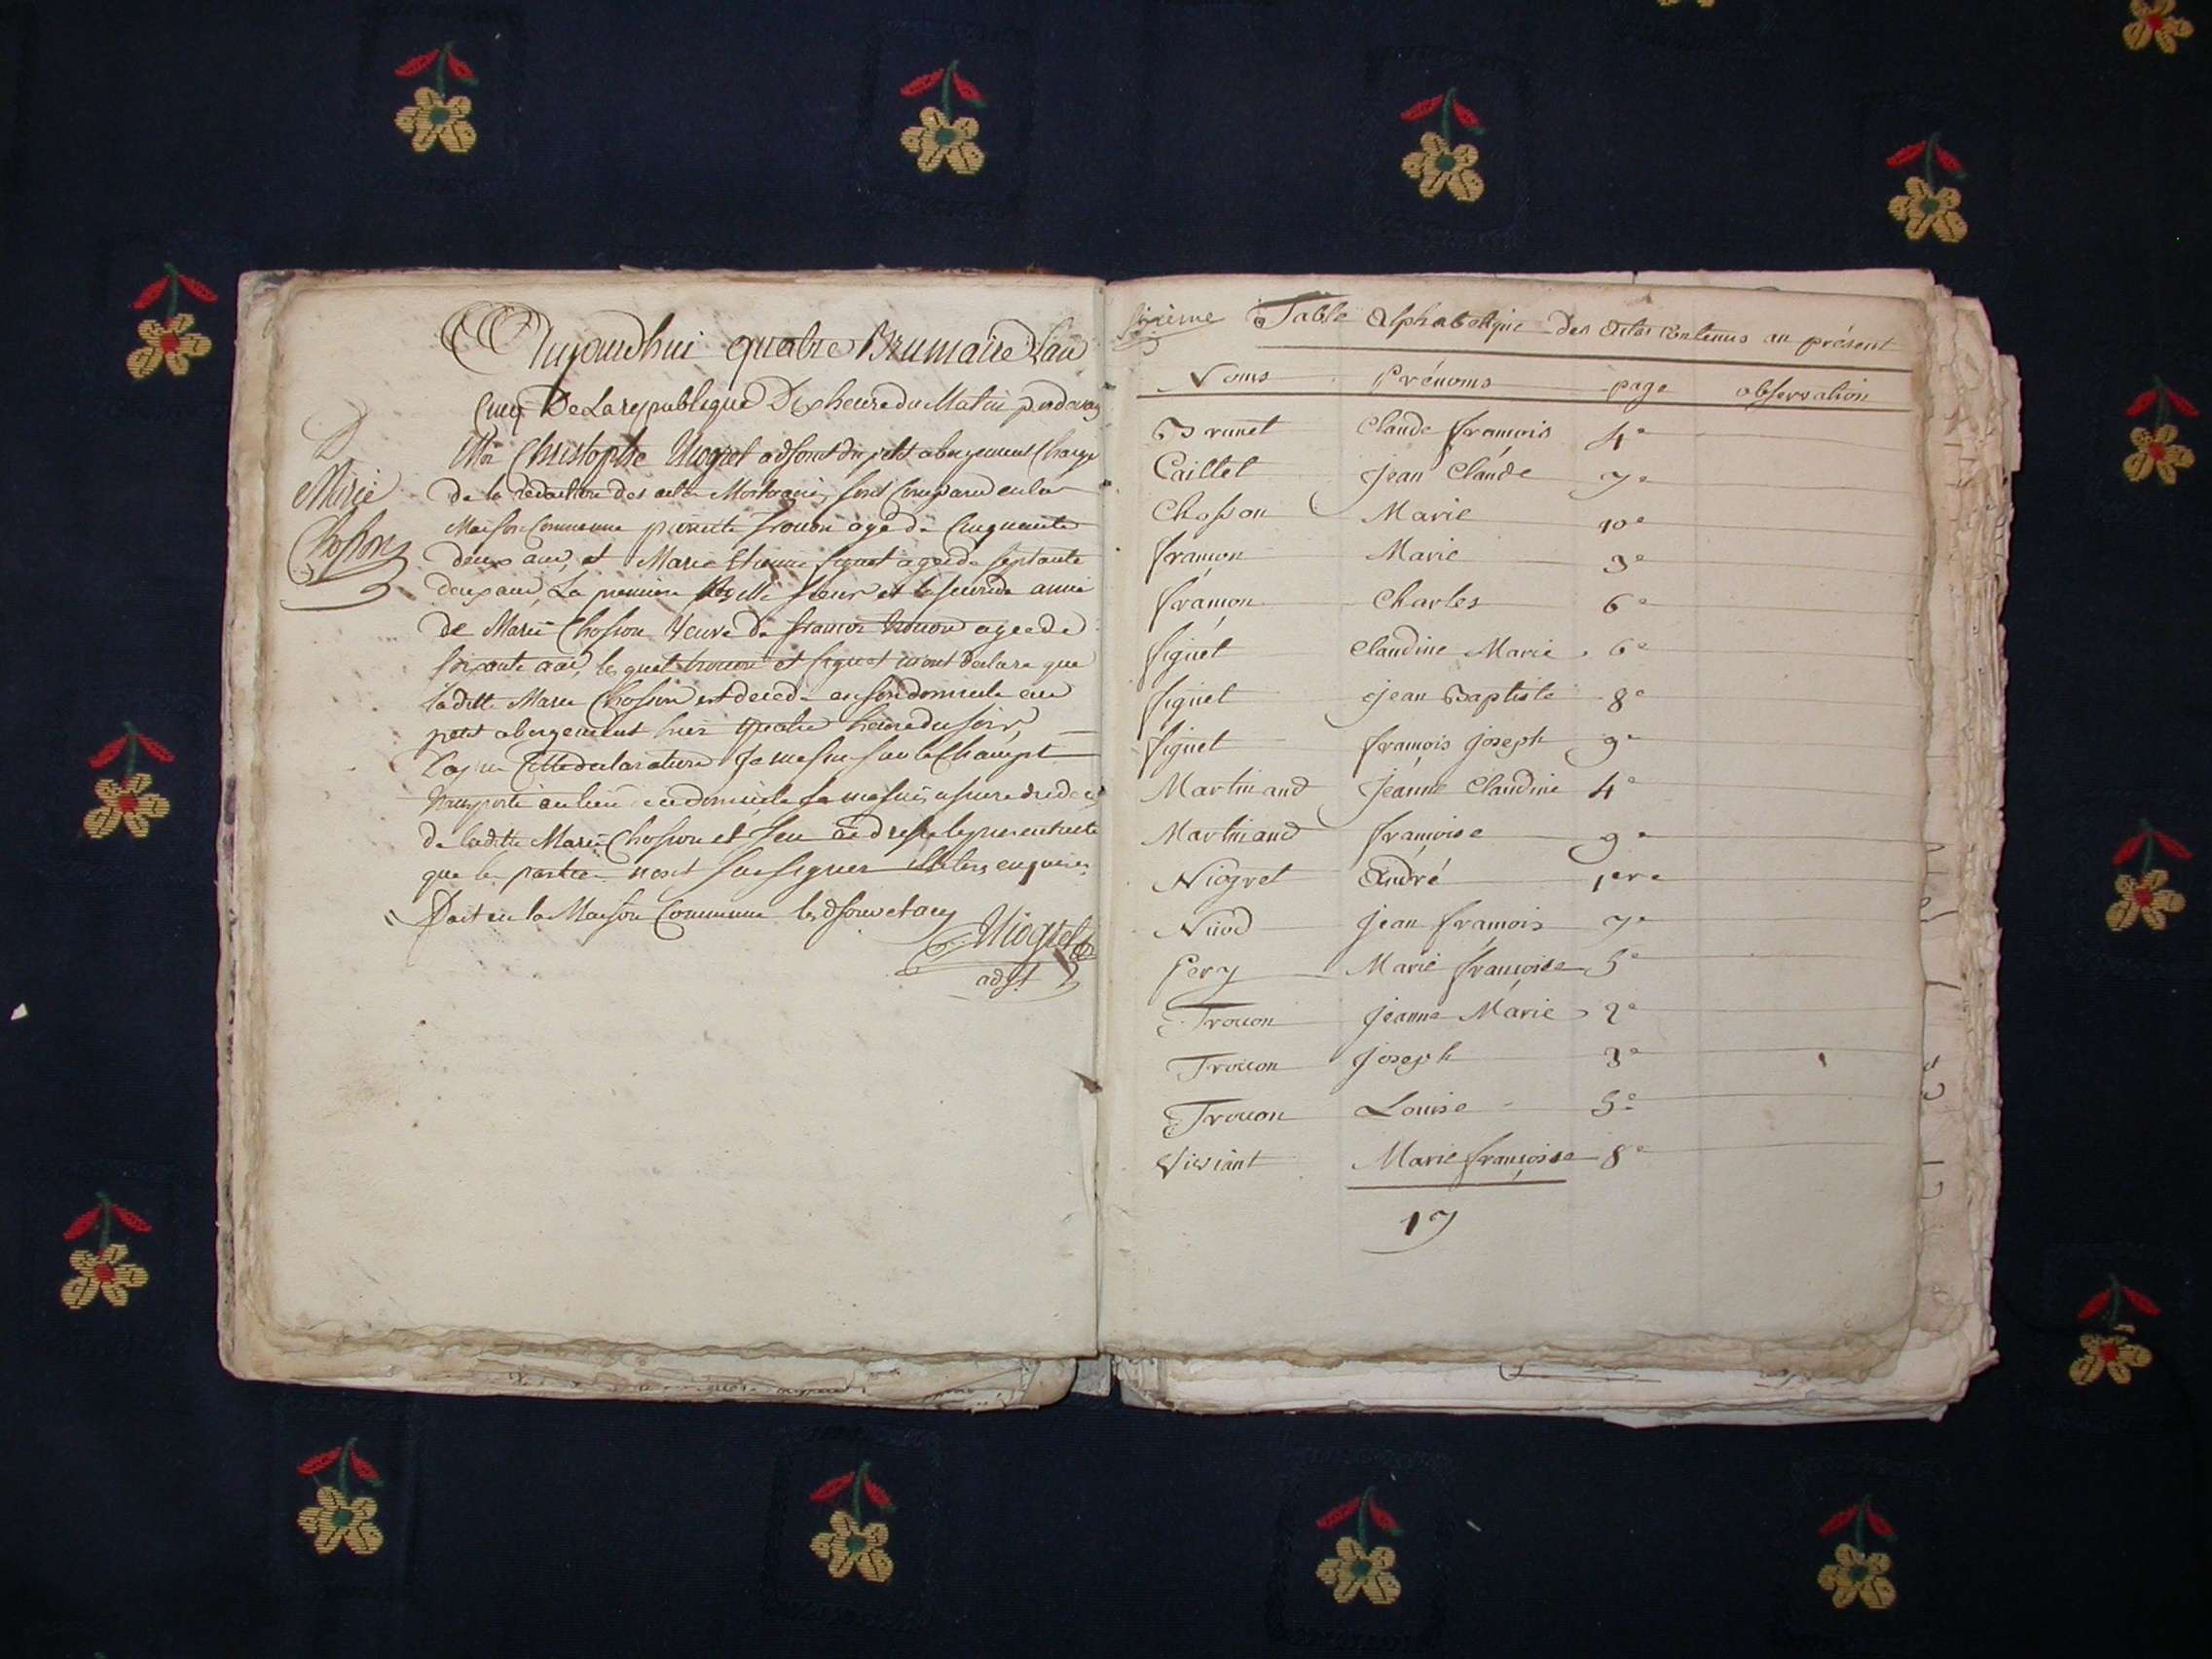 D
Marie
Chosson
Aujourdhui quatre Brumaire Lan
Cinq De La republique Dix heure du Matin pardevan
Moi Christophe Niogret adjoint du petit abergement Charge
de la redaction des acte Mortuaire, sont Comparu en la
Maison Commune pierrette Trouon age de Cinquante
deux ans, et Marie Etienne figuet agee de septante
deux ans, La premiere belle Sœur et la seconde amie
de Marie Chosson Veuve de francois trouon agee de
soixante ans, les quel trouon et figuet mont declare que
laditte Marie Chosson est decede en son domicile au
petit abergement hier quatre heure du soir,
Dapres Cette declaration Je me suis sur le Champt
transporté au lieu domicile Je me suis assure du deces
de laditte Marie Chosson et Jen ai dresse le present acte
que les parties nont su signer
fait en la Maison Commune les Jour et an
Niogret
adjt
Sixième Table Alphabétique des Actes contenus au présent
Noms Prénoms page observation
Brunet Claude françois 4e
Caillet Jean Claude 7e
Chosson Marie 10e
françon Marie 3e
françon Charles 6e
figuet Claudine Marie 6e
figuet Jean Baptiste 8e
figuet françois Joseph 9e
Martinand Jeanne Claudine 4e
Martinand françoise 9e
Niogret André 1ere
Niiod Jean françois 7e
Pery Marie françoise 5e
Trouon Jeanne Marie 2e
Trouon Joseph 3e
Trouon Louise 5e
Viviant Marie françoise 8e
17